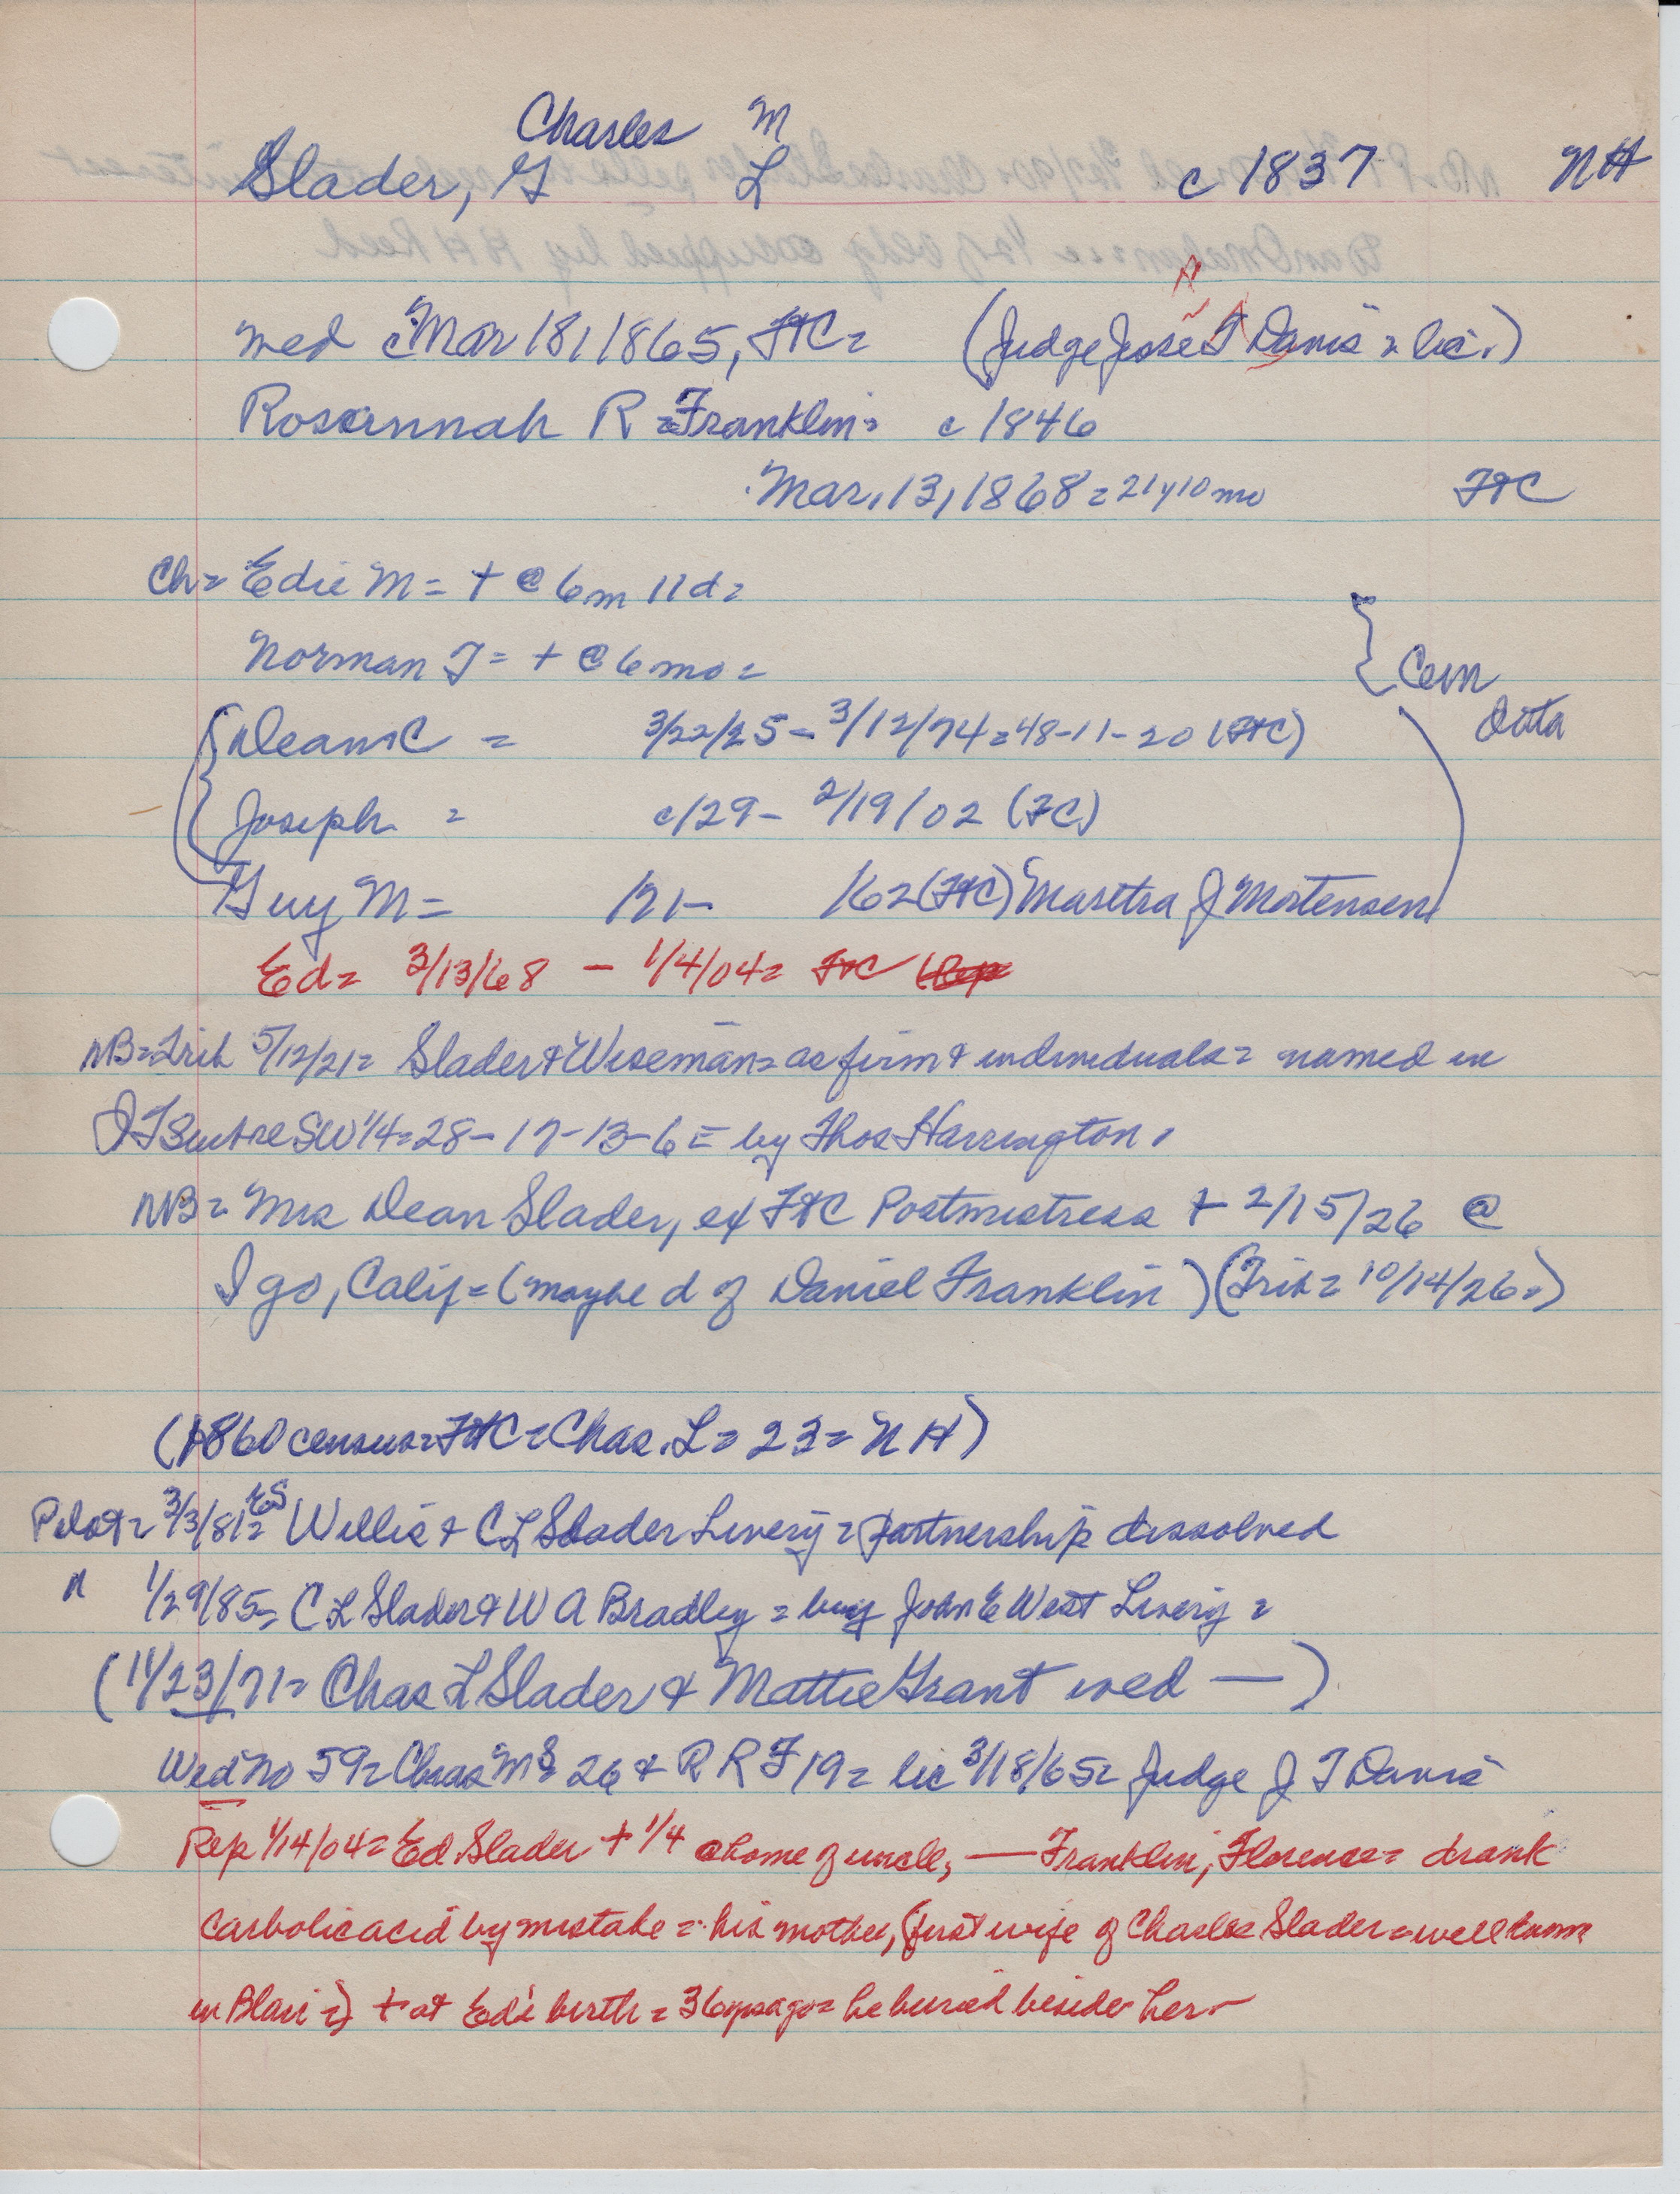 Charles M
Slader, G L c 1837 NH
A
wed c Mar 18, 1865, FtC = (Judge Jesse T Davis = lic.)
Rosannah R = Franklin = c 1846
Mar, 13, 1868 = 21y10mo FtC
Ch = Edie M = + @ 6m 11d =
Norman J = + @ 6mo =
{ Cem
Data
Dean C = 3/22/25 - 3/12/74 = 48-11-20 (FtC)
Joseph = c/29 - 2/19/02 (FC)
Guy M = /71- /62 (FtC) J Mortensen
Ed = 3/13/68 - 1/4/04 = FtC
NB = Trib 5/12/21 = Slader & Wiseman = as firm & individuals = named in
SW 1/4 = 28-17-13-6 = by Thos Harrington.
NB = Mrs Dean Slader, ex FtC Postmistress + 2/15/26 @
Igo, Calif = (maybe d of Daniel Franklin) (Trib = 10/14/26 =)
(1860 census = FtC = Chas. L = 23 = NH)
Pilot = 3/3/81 = Willis & C L Slader Livery = partnership dissolved
" 1/29/85 = C L Slader & W A Bradley = buy John E West Livery =
(11/23/71 = Chas L Slader & Mattie Grant wed —)
Wed No 59 = Chas M S 26 & R R F 19 = lic 3/18/65 = Judge J T Davis
Rep 1/14/04 = Ed Slader + 1/4 @ home of uncle, — Franklin, Florence = drank
carbolic acid by mistake = his mother, (first wife of Charles Slader = well known
in Blair =) + at Ed's birth = 36 yrs ago = he buried beside her -